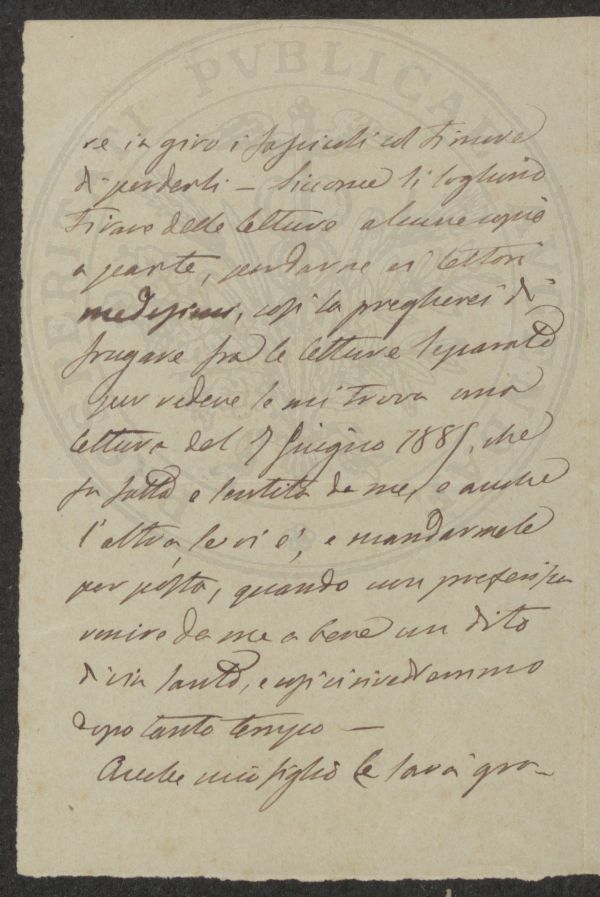 re in giro i fascicoli col timore
di perderli — Siccome si sogliono
tirare delle letture alcune copie
a parte, per darne ai lettori
medesimi, così la pregherei di
frugare fra le letture separate
per vedere se mi trova una
lettura del 7 Giugno 1885, che
fu fatta e sentita da me, o anche
l'altra, se vi è, e mandarmele
per posta, quando non preferisca
venire da me a bere un dito
di vin santo, e così ci rivedremmo
dopo tanto tempo —
Anche mio figlio Le sarà gra-